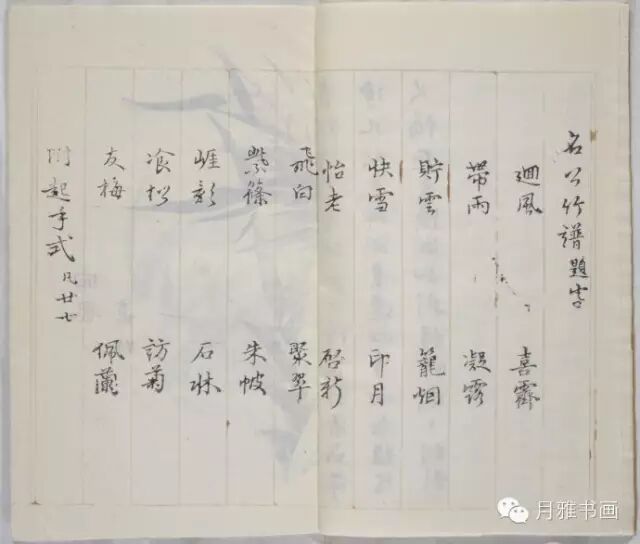 名公竹譜題
迴風 喜霽
帶雨 凝露
貯雲 籠烟
快雪 印月
怡老 啓新
飛白 聚翠
紫篠 朱帔
崕影 石牀
飡松 訪菊
友梅 佩蘭
附起手式 凡廿七
月雅书画